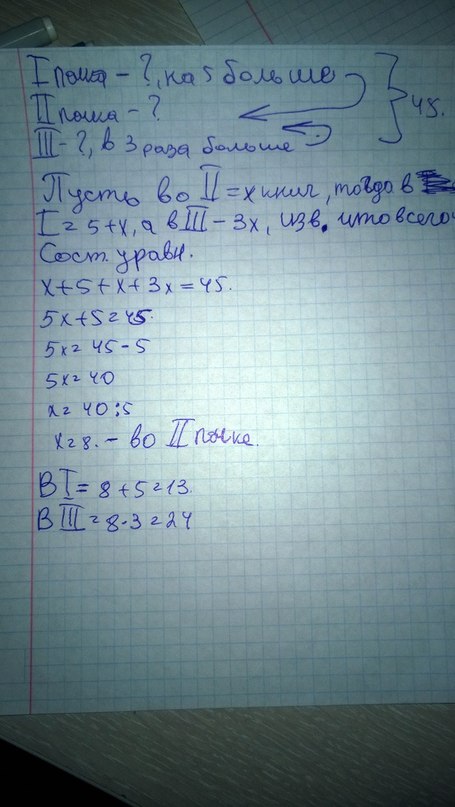 I полка - ?, на 5 больше
II полка - ?
45.
III - ?, в 3 раза больше
Пусть во II = x книг, тогда в
I = 5+x, а в III - 3x, изв. что всего
Сост. уравн.
x+5+x+3x=45.
5x+5=45.
5x=45-5
5x=40
x=40:5
x=8. - во II полке.
В I = 8+5=13.
В III = 8·3=24